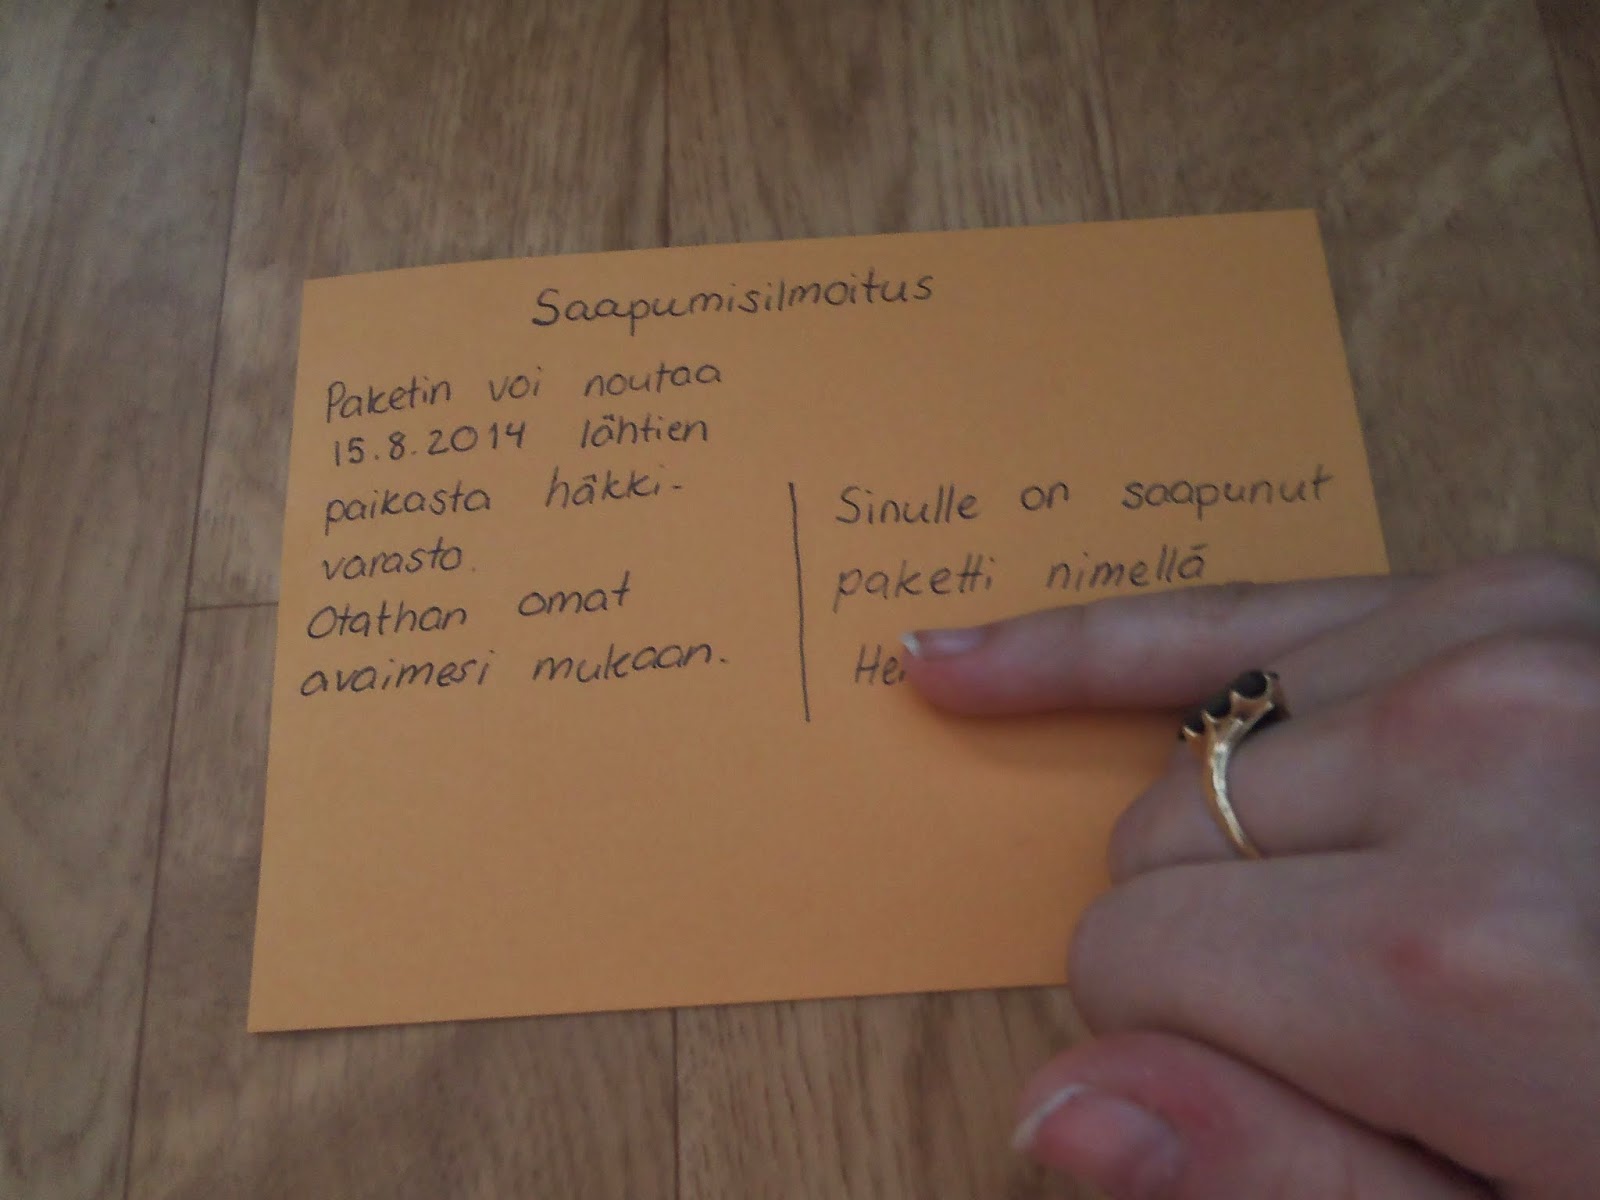 Saapumisilmoitus
Paketin voi noutaa
15.8.2014 lähtien
paikasta häkki-
varasto.
Otathan omat
avaimesi mukaan.
Sinulle on saapunut
paketti nimellä